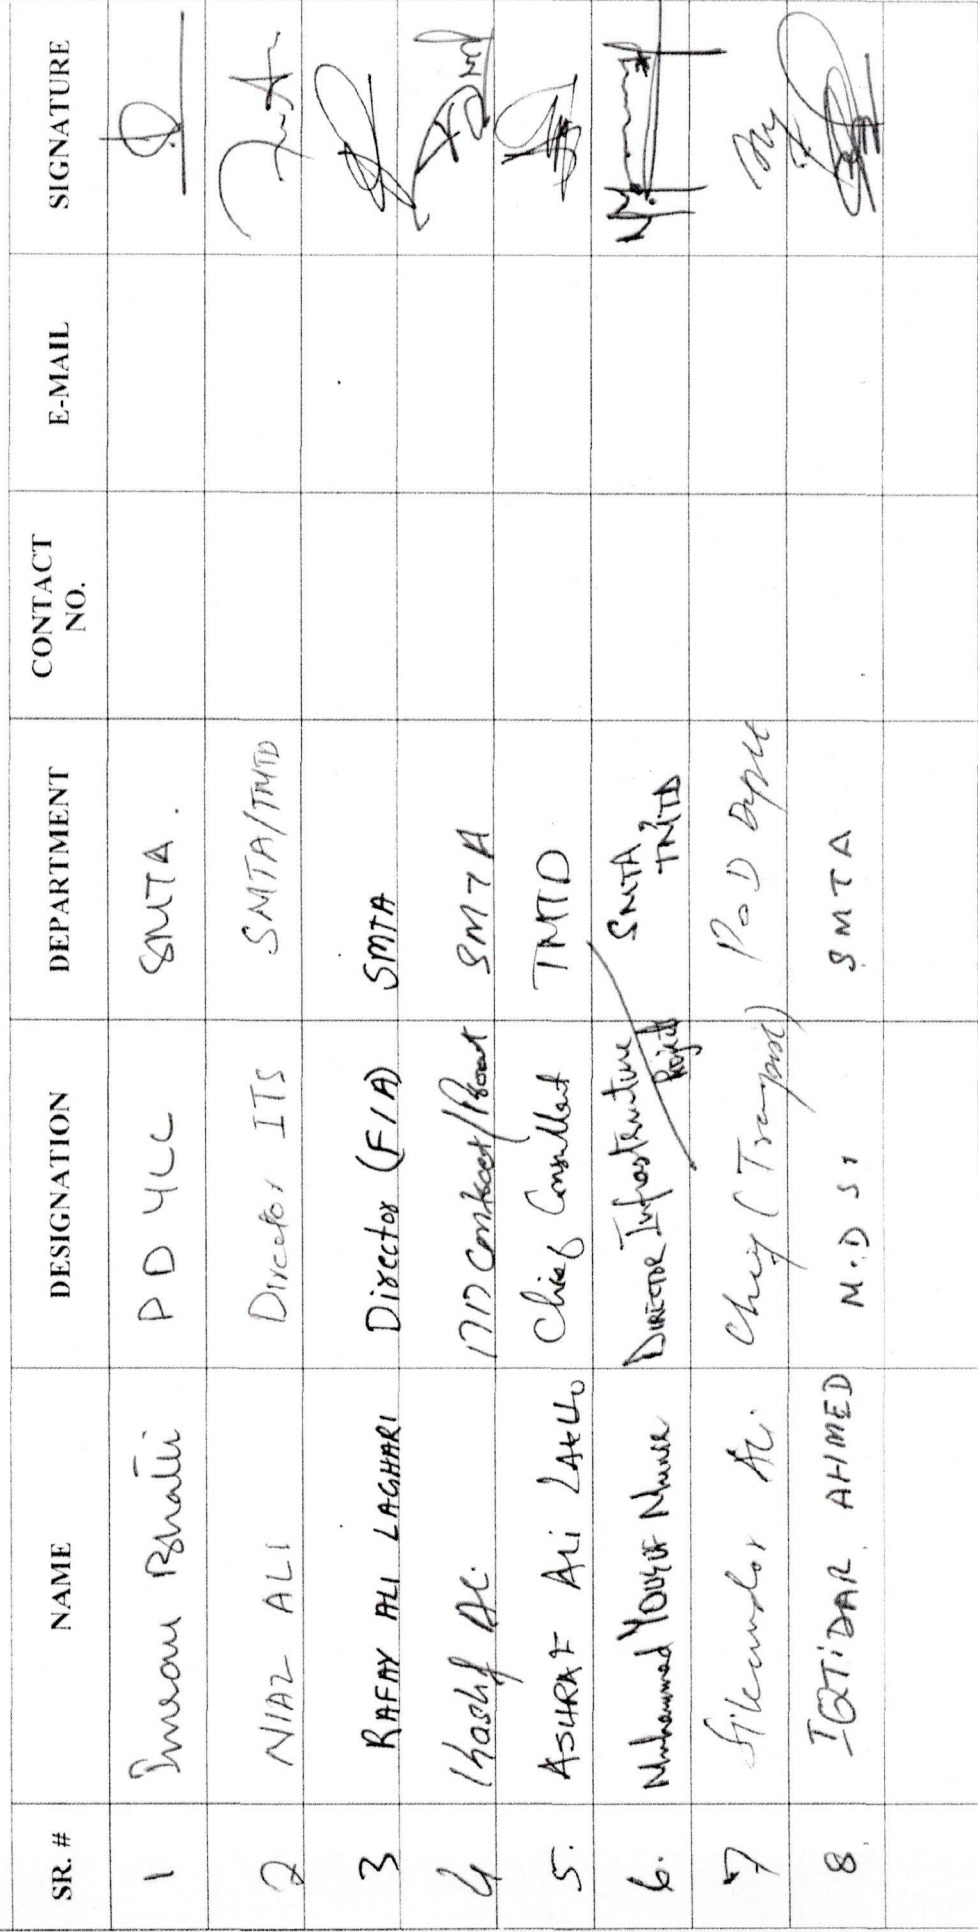 SR. # NAME DESIGNATION DEPARTMENT CONTACT NO. E-MAIL SIGNATURE
1 Imran Bhatti PD YLC SMTA.
2 NIAZ ALI Director ITS SMTA/TMTD
3 RAFAY ALI LAGHARI Director (F/A) SMTA
4 Kashif Ali SMTA
5. ASHRAF ALI Chief Consultant TMTD
6. Muhammad YOUSUF DIRECTOR Infrastructure Projects SMTA TMTD
7 Sikandar Ali Chief (Transport)
8 IQTIDAR AHMED SMTA